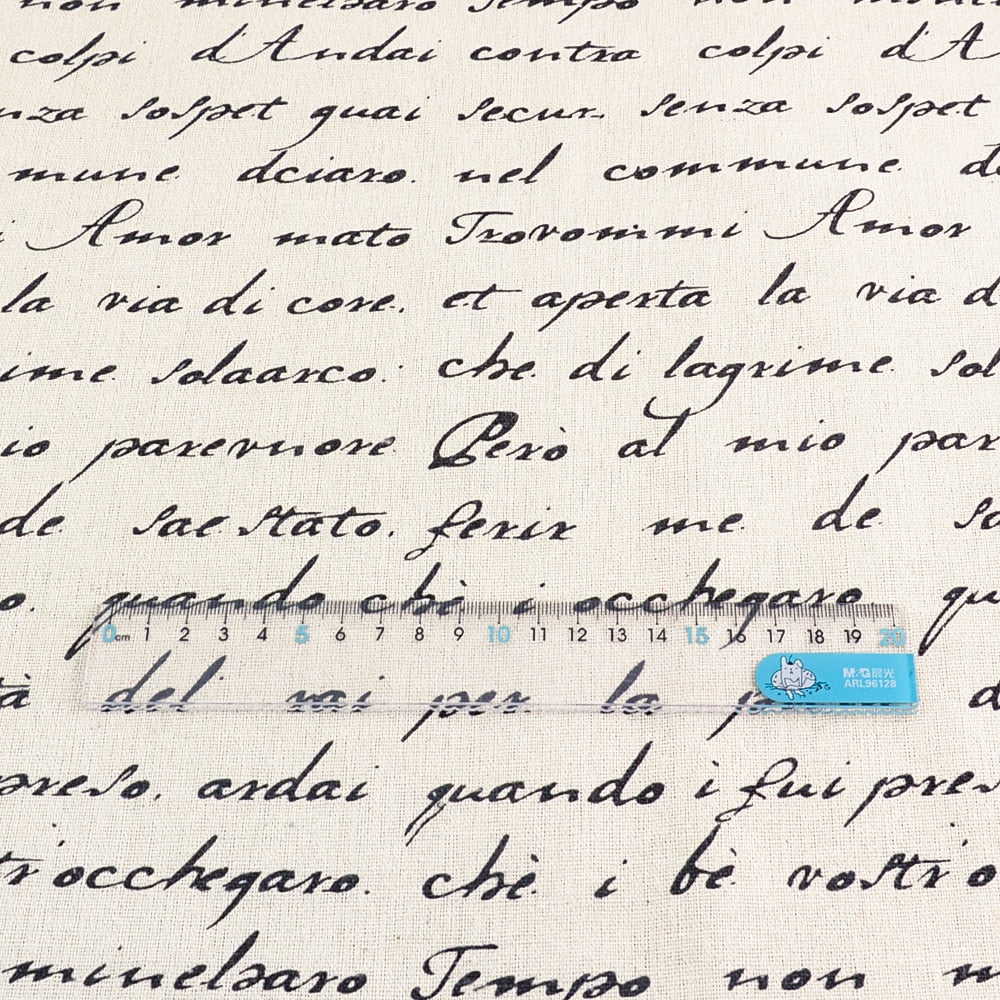 non minelsaro Tempo non
colpi d'Andai contra colpi d'A
nza sospet guai secur. senza sospet
mune dciaro. nel commune de
i Amor mato Trovommi Amor
la via di core. et aperta la via d
ime solaarco: che di lagrime sol
io parevnore Però al mio par
de sae stato. ferir me de sa
o. quando chè i occhegaro qu
0 cm 1 2 3 4 5 6 7 8 9 10 11 12 13 14 15 16 17 18 19 20
à del vai per la d
M&G晨光
ARL96128
preso. ardai quando i fui pres
tr'occhegaro. chè i bè vostr'o
minelsaro Tempo non m